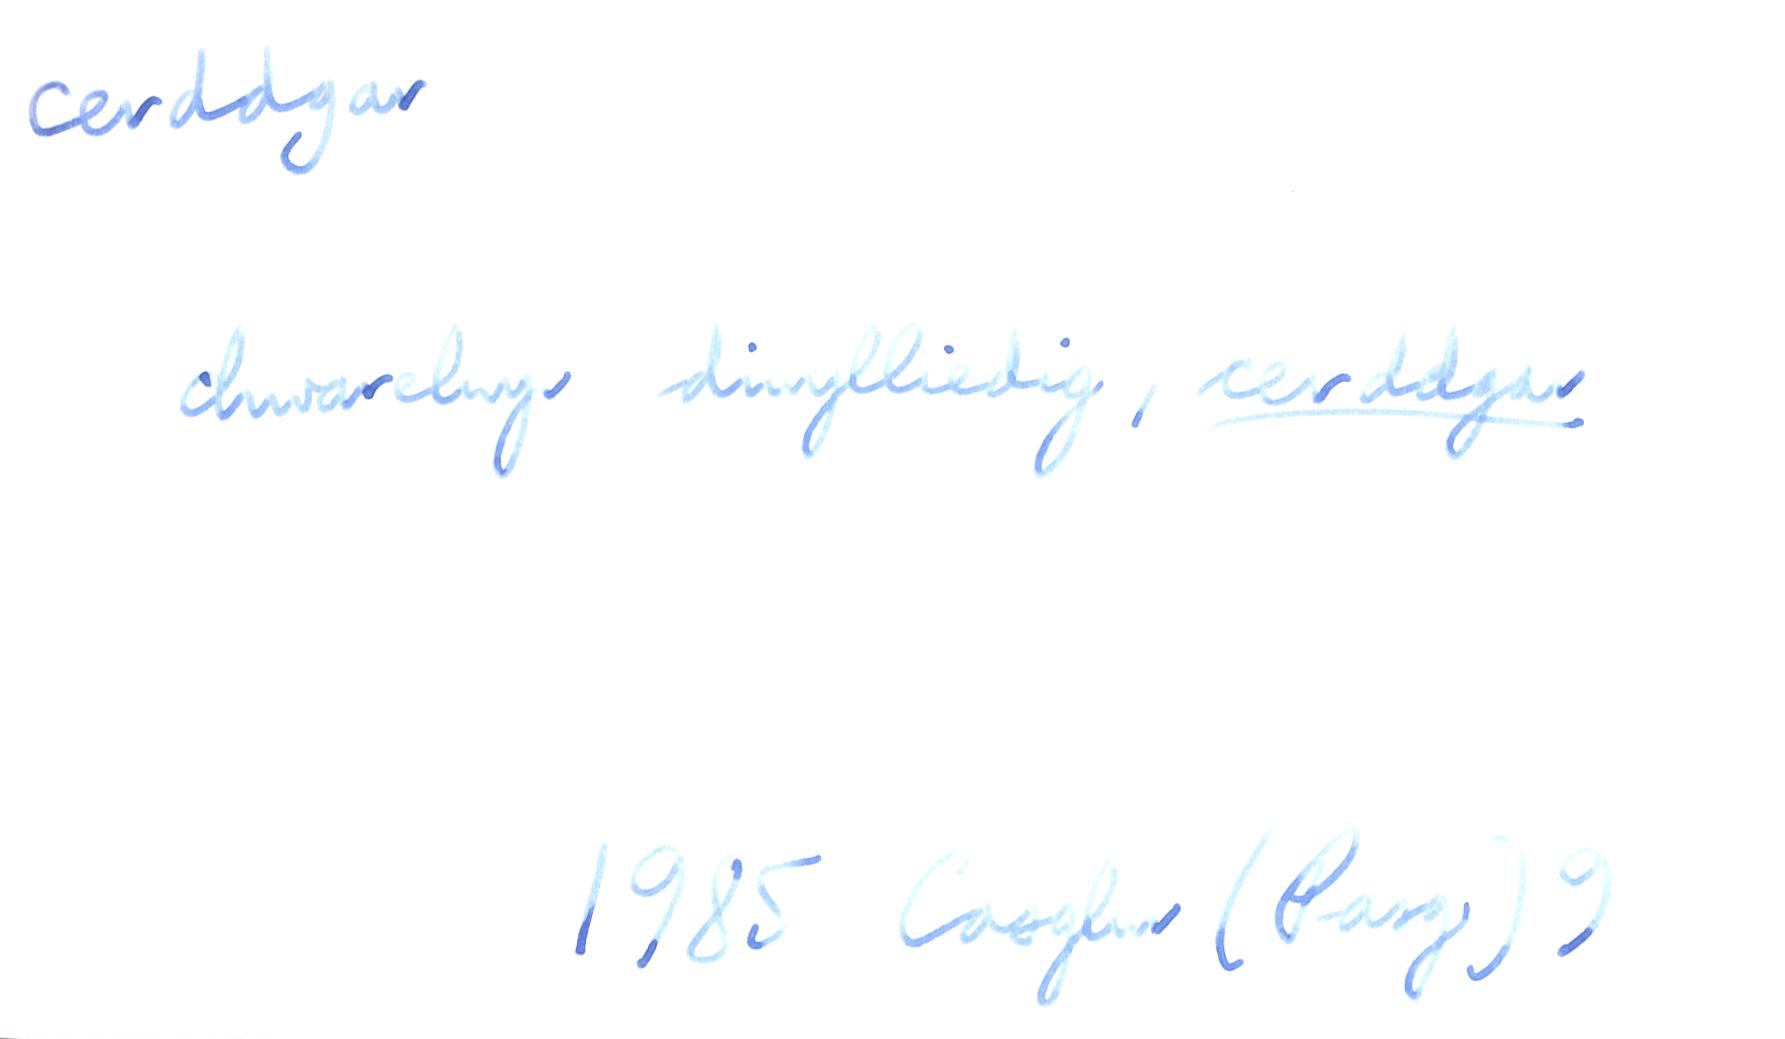 cerddgar
chwarelwyr diwylliedig, cerddgar
1985 Casglwr (Pasg) 9